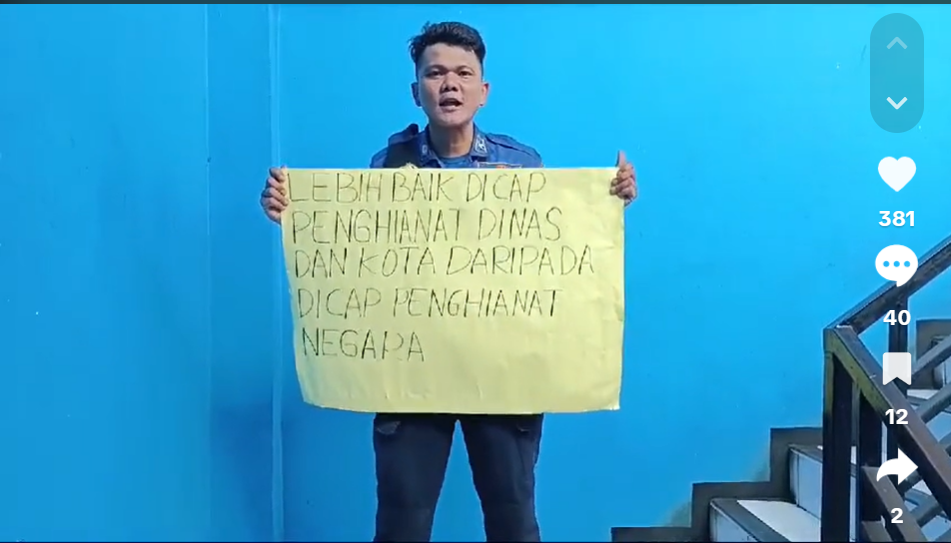 LEBIH BAIK DICAP
PENGHIANAT DINAS
DAN KOTA DARIPADA
DICAP PENGHIANAT
NEGARA
381
40
12
2